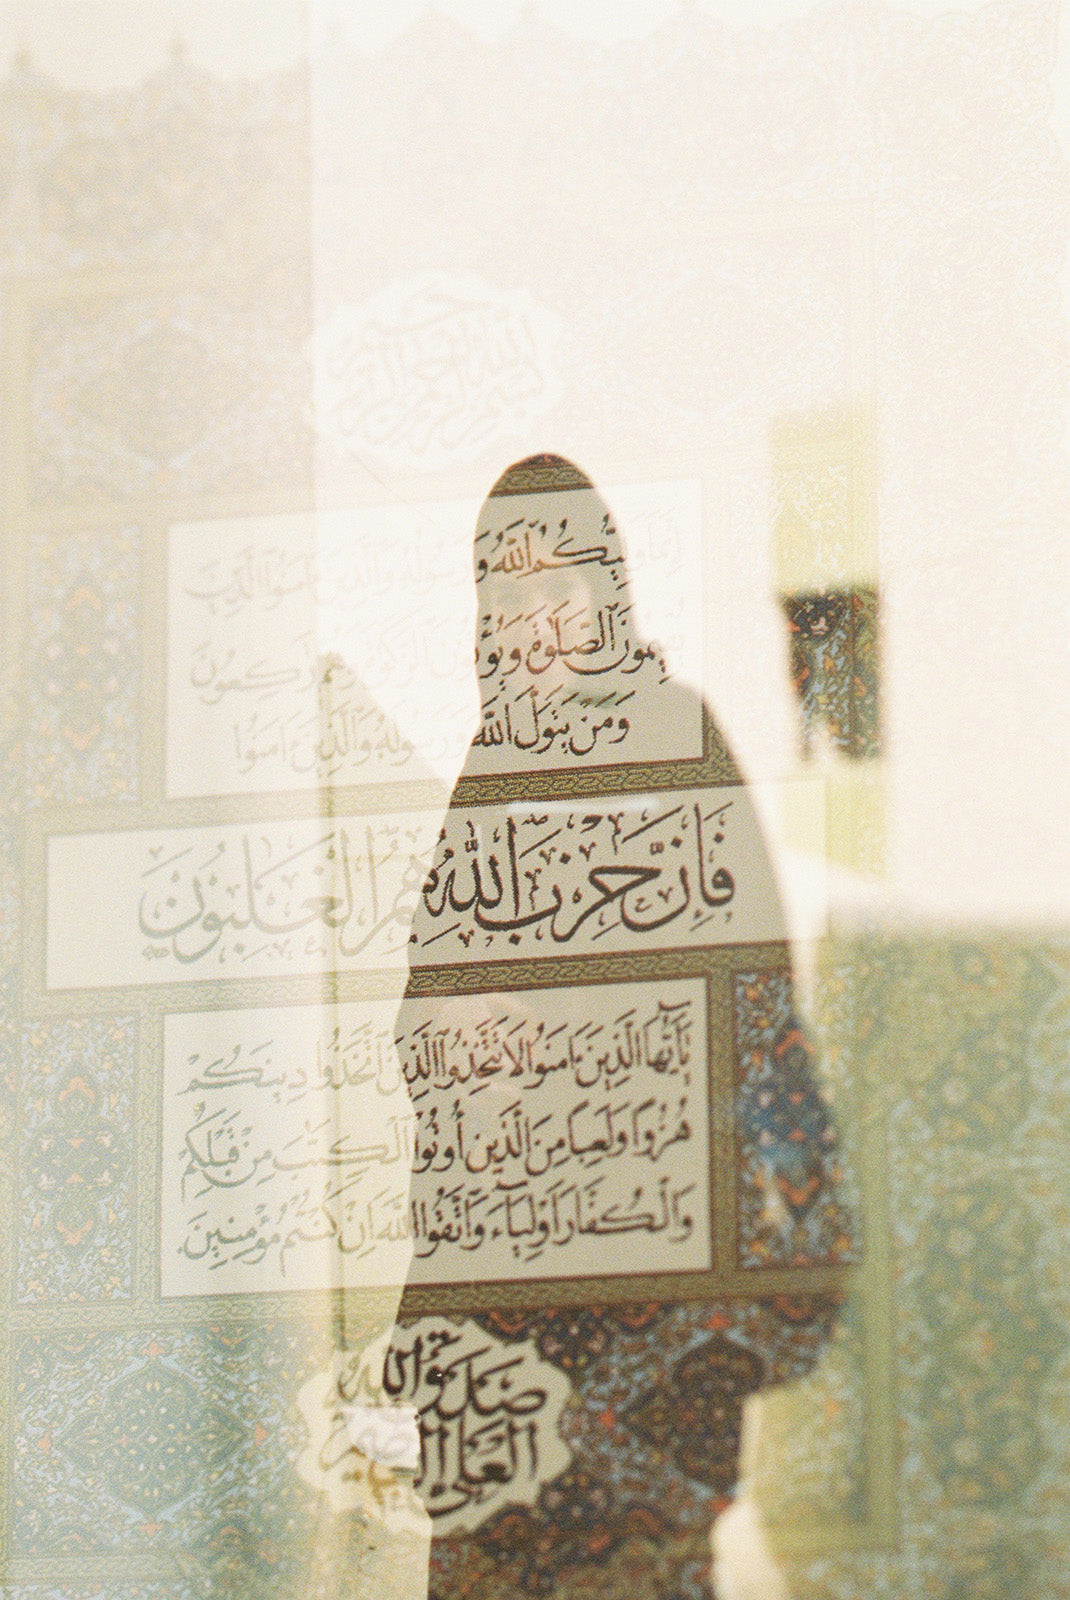 بسم الله الرحمن الرحيم
إِنَّمَا وَلِيُّكُمُ ٱللَّهُ وَرَسُولُهُ وَٱلَّذِينَ ءَامَنُوا ٱلَّذِينَ
يُقِيمُونَ ٱلصَّلَوٰةَ وَيُؤْتُونَ ٱلزَّكَوٰةَ وَهُمْ رَٰكِعُونَ
وَمَنْ يَتَوَلَّ ٱللَّهَ وَرَسُولَهُ وَٱلَّذِينَ ءَامَنُوا
فَإِنَّ حِزْبَ ٱللَّهِ هُمُ ٱلْغَٰلِبُونَ
يَٰٓأَيُّهَا ٱلَّذِينَ ءَامَنُوا لَا تَتَّخِذُوا ٱلَّذِينَ ٱتَّخَذُوا دِينَكُمْ
هُزُوًا وَلَعِبًا مِنَ ٱلَّذِينَ أُوتُوا ٱلْكِتَٰبَ مِنْ قَبْلِكُمْ
وَٱلْكُفَّارَ أَوْلِيَآءَ وَٱتَّقُوا ٱللَّهَ إِنْ كُنْتُمْ مُؤْمِنِينَ
صدق الله
العلي العظيم